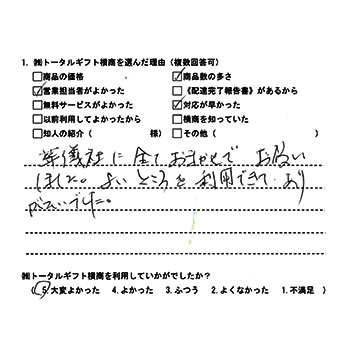 1. ㈱トータルギフト横商を選んだ理由（複数回答可）
□商品の価格 ☑商品数の多さ
☑営業担当者がよかった □《配達完了報告書》があるから
□無料サービスがよかった ☑対応が早かった
□以前利用してよかったから □横商を知っていた
□知人の紹介（ 様） □その他（ ）
葬儀社に全ておまかせで お願い
しました。よいところを利用できて、あり
がたいでした。
㈱トータルギフト横商を利用していかがでしたか？
（ 5.大変よかった 4.よかった 3.ふつう 2.よくなかった 1.不満足 ）